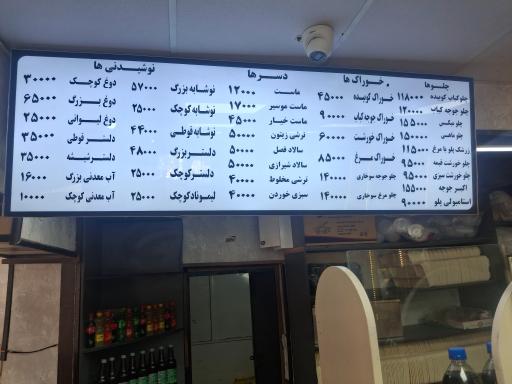 چلوها
چلو کباب کوبیده ۱۱۸۰۰۰
چلو جوجه کباب ۱۲۰۰۰۰
چلو مکس ۱۵۵۰۰۰
چلو ماهی ۱۵۰۰۰۰
زرشک پلو با مرغ ۱۱۵۰۰۰
چلو خورشت قیمه ۹۵۰۰۰
چلو خورشت سبزی ۹۵۰۰۰
اکبر جوجه ۱۵۵۰۰۰
استامبولی پلو ۹۰۰۰۰
خوراک ها
خوراک کوبیده ۴۵۰۰۰
خوراک جوجه کباب ۹۰۰۰۰
خوراک خورشت ۶۰۰۰۰
خوراک مرغ ۸۵۰۰۰
چلو جوجه سوخاری ۱۴۰۰۰۰
چلو مرغ سوخاری ۱۴۰۰۰۰
دسرها
ماست ۱۲۰۰۰
ماست موسیر ۱۷۰۰۰
ماست خیار ۴۵۰۰۰
ترشی زیتون ۵۰۰۰۰
سالاد فصل ۵۰۰۰۰
سالاد شیرازی ۵۰۰۰۰
ترشی مخلوط ۴۰۰۰۰
سبزی خوردن ۴۰۰۰۰
نوشیدنی ها
نوشابه بزرگ ۵۷۰۰۰
نوشابه کوچک ۲۵۰۰۰
نوشابه قوطی ۴۴۰۰۰
دلستر بزرگ ۴۸۰۰۰
دلستر کوچک ۲۵۰۰۰
لیموناد کوچک ۲۵۰۰۰
دوغ کوچک ۳۰۰۰۰
دوغ بزرگ ۶۵۰۰۰
دوغ لیوانی ۲۵۰۰۰
دلستر قوطی ۳۵۰۰۰
دلستر شیشه ۳۵۰۰۰
آب معدنی بزرگ ۱۶۰۰۰
آب معدنی کوچک ۱۰۰۰۰